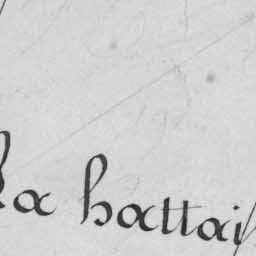 La battail